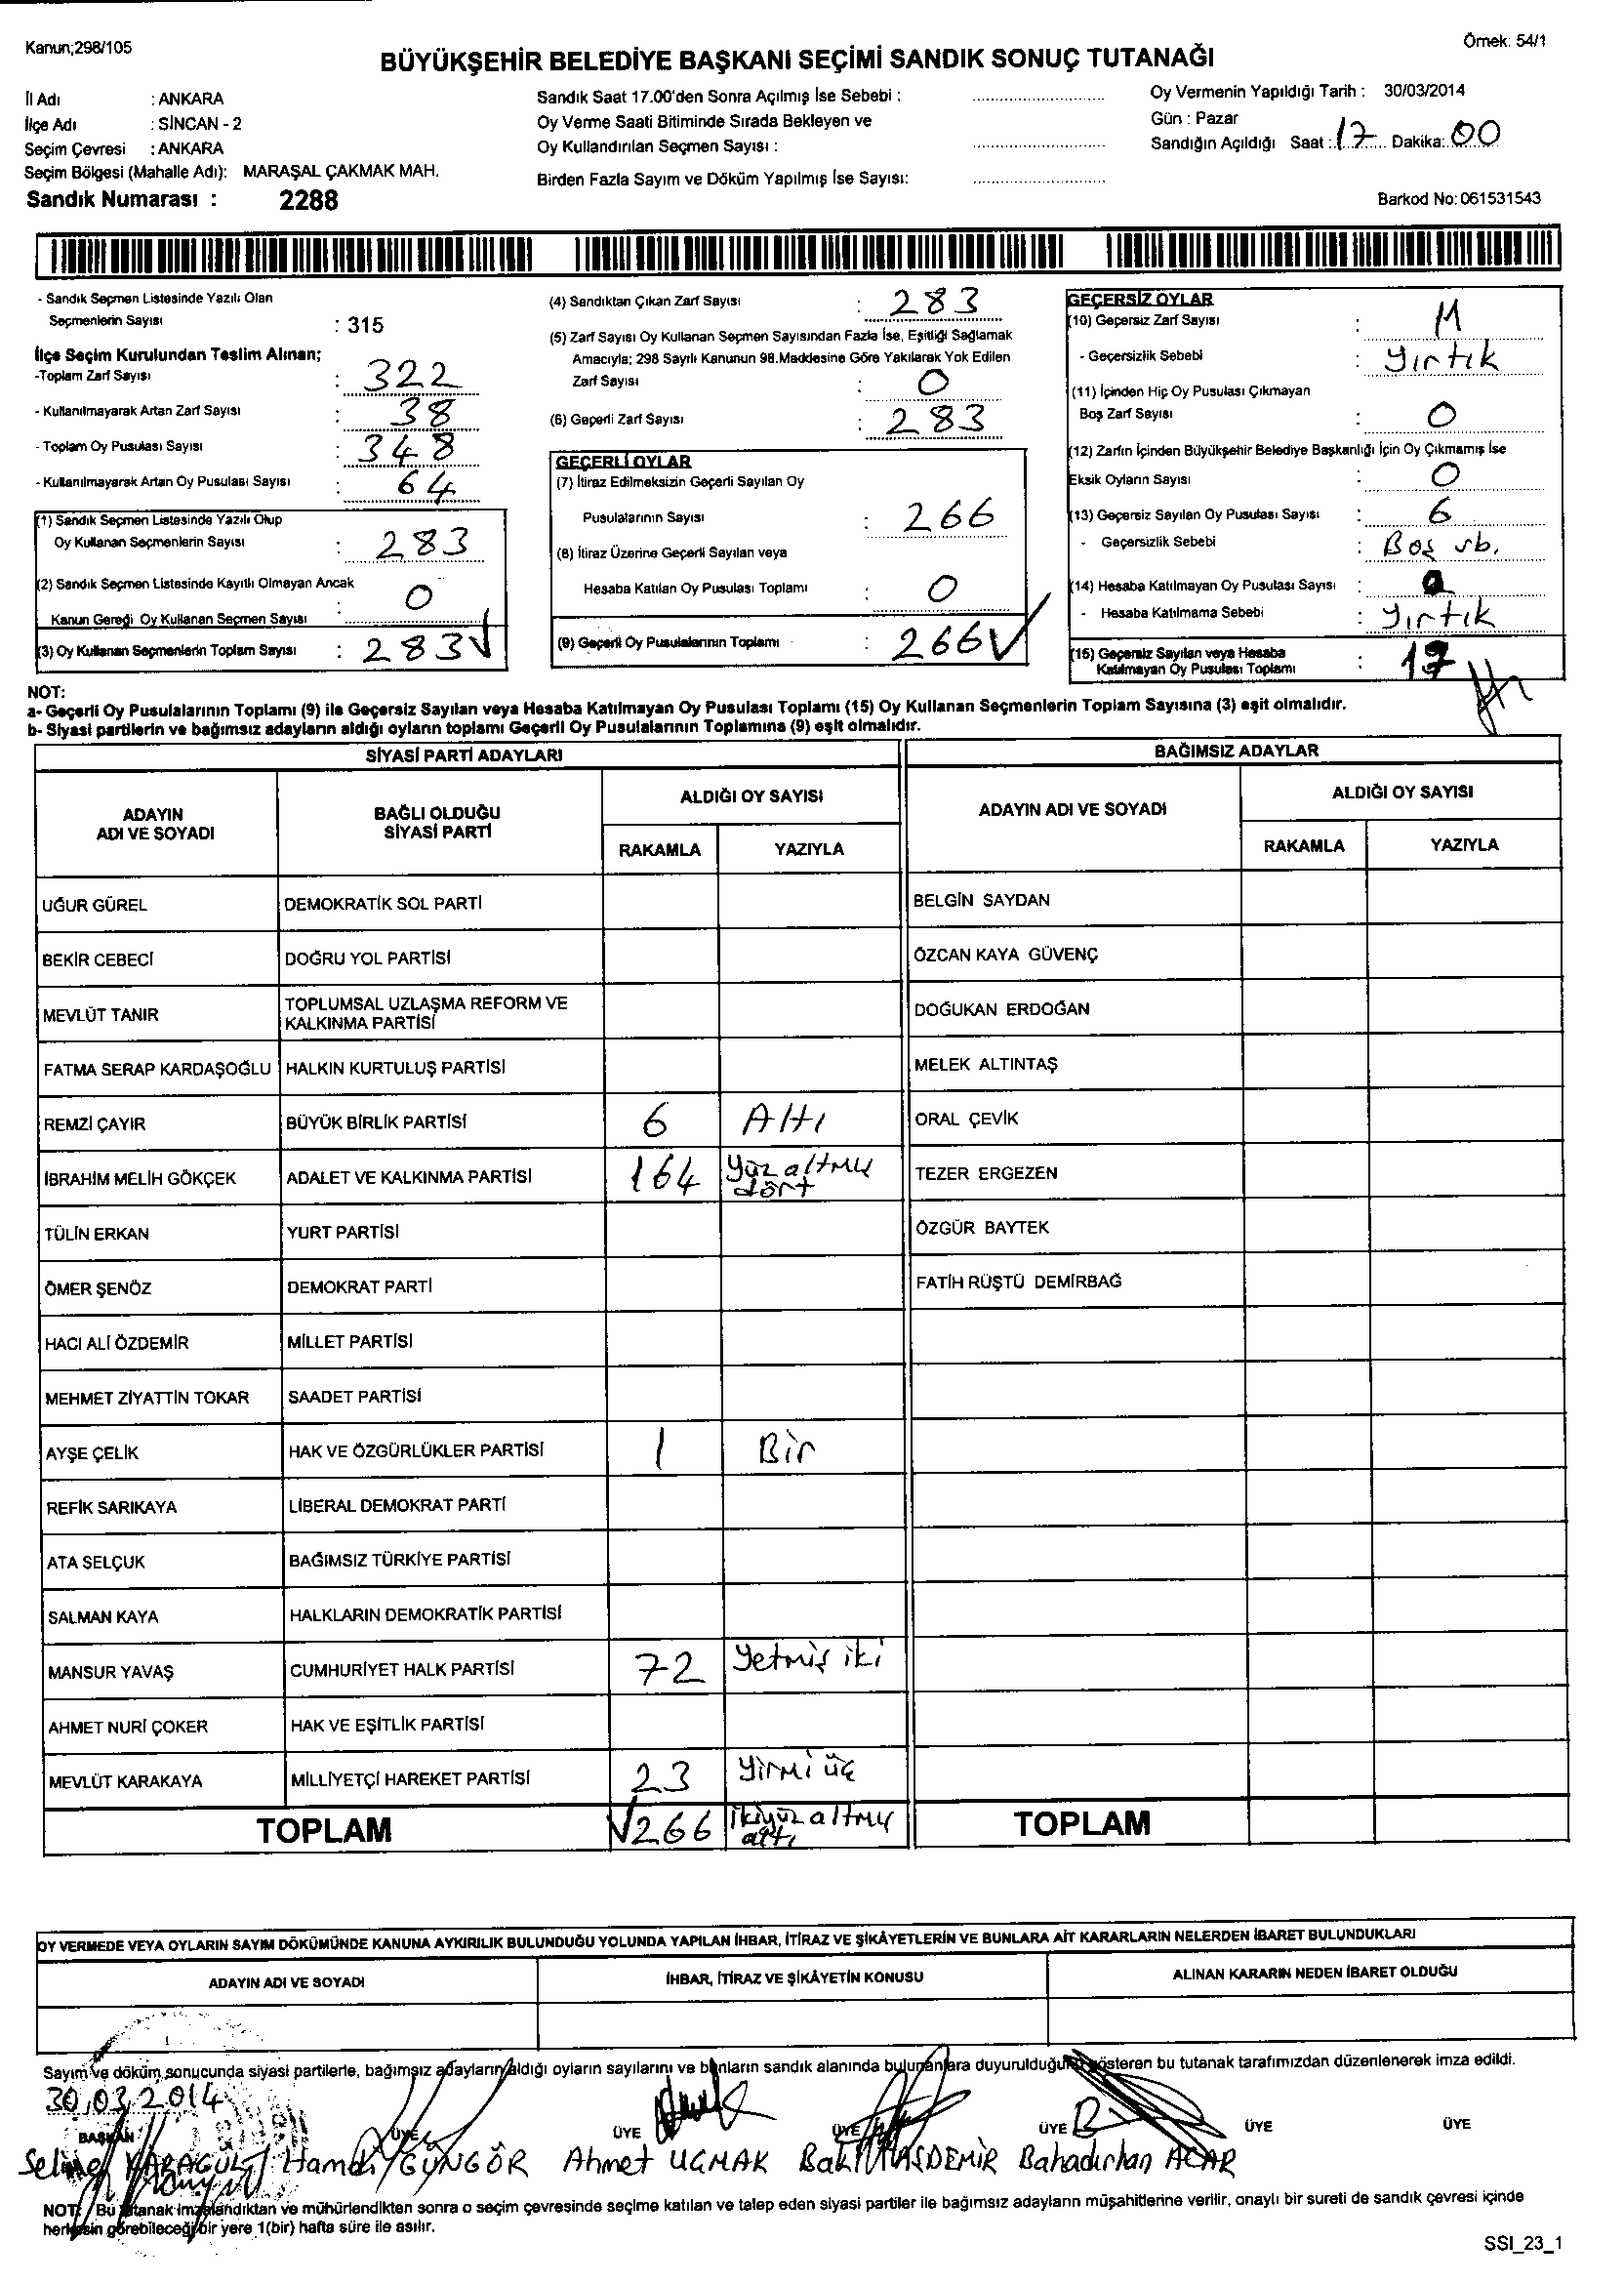 Kanun;298/105
Örnek: 54/1
BÜYÜKŞEHİR BELEDİYE BAŞKANI SEÇİMİ SANDIK SONUÇ TUTANAĞI
İl Adı : ANKARA
İlçe Adı : SİNCAN - 2
Seçim Çevresi : ANKARA
Seçim Bölgesi (Mahalle Adı): MARAŞAL ÇAKMAK MAH.
Sandık Numarası : 2288
Sandık Saat 17.00'den Sonra Açılmış İse Sebebi :
Oy Verme Saati Bitiminde Sırada Bekleyen ve
Oy Kullandırılan Seçmen Sayısı :
Birden Fazla Sayım ve Döküm Yapılmış İse Sayısı:
Oy Vermenin Yapıldığı Tarih : 30/03/2014
Gün : Pazar
Sandığın Açıldığı Saat : 17 Dakika: 00
Barkod No: 061531543
- Sandık Seçmen Listesinde Yazılı Olan
Seçmenlerin Sayısı : 315
İlçe Seçim Kurulundan Teslim Alınan;
-Toplam Zarf Sayısı : 322
- Kullanılmayarak Artan Zarf Sayısı : 38
- Toplam Oy Pusulası Sayısı : 348
- Kullanılmayarak Artan Oy Pusulası Sayısı : 64
(1) Sandık Seçmen Listesinde Yazılı Olup
Oy Kullanan Seçmenlerin Sayısı : 283
(2) Sandık Seçmen Listesinde Kayıtlı Olmayan Ancak
Kanun Gereği Oy Kullanan Seçmen Sayısı : 0
(3) Oy Kullanan Seçmenlerin Toplam Sayısı : 283
(4) Sandıktan Çıkan Zarf Sayısı : 283
(5) Zarf Sayısı Oy Kullanan Seçmen Sayısından Fazla İse, Eşitliği Sağlamak
Amacıyla; 298 Sayılı Kanunun 98.Maddesine Göre Yakılarak Yok Edilen
Zarf Sayısı : 0
(6) Geçerli Zarf Sayısı : 283
GEÇERLİ OYLAR
(7) İtiraz Edilmeksizin Geçerli Sayılan Oy
Pusulalarının Sayısı : 266
(8) İtiraz Üzerine Geçerli Sayılan veya
Hesaba Katılan Oy Pusulası Toplamı : 0
(9) Geçerli Oy Pusulalarının Toplamı : 266
GEÇERSİZ OYLAR
(10) Geçersiz Zarf Sayısı : 11
- Geçersizlik Sebebi : Yırtık
(11) İçinden Hiç Oy Pusulası Çıkmayan
Boş Zarf Sayısı : 0
(12) Zarfın İçinden Büyükşehir Belediye Başkanlığı İçin Oy Çıkmamış İse
Eksik Oyların Sayısı : 0
(13) Geçersiz Sayılan Oy Pusulası Sayısı : 6
- Geçersizlik Sebebi : Boş vb.
(14) Hesaba Katılmayan Oy Pusulası Sayısı :
- Hesaba Katılmama Sebebi : Yırtık
(15) Geçersiz Sayılan veya Hesaba
Katılmayan Oy Pusulası Toplamı : 17
NOT:
a- Geçerli Oy Pusulalarının Toplamı (9) ile Geçersiz Sayılan veya Hesaba Katılmayan Oy Pusulası Toplamı (15) Oy Kullanan Seçmenlerin Toplam Sayısına (3) eşit olmalıdır.
b- Siyasi partilerin ve bağımsız adayların aldığı oyların toplamı Geçerli Oy Pusulalarının Toplamına (9) eşit olmalıdır.
SİYASİ PARTİ ADAYLARI
ADAYIN ADI VE SOYADI
BAĞLI OLDUĞU SİYASİ PARTİ
ALDIĞI OY SAYISI
RAKAMLA YAZIYLA
UĞUR GÜREL DEMOKRATİK SOL PARTİ
BEKİR CEBECİ DOĞRU YOL PARTİSİ
MEVLÜT TANIR TOPLUMSAL UZLAŞMA REFORM VE
KALKINMA PARTİSİ
FATMA SERAP KARDAŞOĞLU HALKIN KURTULUŞ PARTİSİ
REMZİ ÇAYIR BÜYÜK BİRLİK PARTİSİ 6 Altı
İBRAHİM MELİH GÖKÇEK ADALET VE KALKINMA PARTİSİ 164 Yüz altmış
dört
TÜLİN ERKAN YURT PARTİSİ
ÖMER ŞENÖZ DEMOKRAT PARTİ
HACI ALİ ÖZDEMİR MİLLET PARTİSİ
MEHMET ZİYATTİN TOKAR SAADET PARTİSİ
AYŞE ÇELİK HAK VE ÖZGÜRLÜKLER PARTİSİ 1 Bir
REFİK SARIKAYA LİBERAL DEMOKRAT PARTİ
ATA SELÇUK BAĞIMSIZ TÜRKİYE PARTİSİ
SALMAN KAYA HALKLARIN DEMOKRATİK PARTİSİ
MANSUR YAVAŞ CUMHURİYET HALK PARTİSİ 72 Yetmiş iki
AHMET NURİ ÇOKER HAK VE EŞİTLİK PARTİSİ
MEVLÜT KARAKAYA MİLLİYETÇİ HAREKET PARTİSİ 23 Yirmi üç
TOPLAM 266 İkiyüz altmış
altı
BAĞIMSIZ ADAYLAR
ADAYIN ADI VE SOYADI
ALDIĞI OY SAYISI
RAKAMLA YAZIYLA
BELGİN SAYDAN
ÖZCAN KAYA GÜVENÇ
DOĞUKAN ERDOĞAN
MELEK ALTINTAŞ
ORAL ÇEVİK
TEZER ERGEZEN
ÖZGÜR BAYTEK
FATİH RÜŞTÜ DEMİRBAĞ
TOPLAM
OY VERMEDE VEYA OYLARIN SAYIM DÖKÜMÜNDE KANUNA AYKIRILIK BULUNDUĞU YOLUNDA YAPILAN İHBAR, İTİRAZ VE ŞİKÂYETLERİN VE BUNLARA AİT KARARLARIN NELERDEN İBARET BULUNDUKLARI
ADAYIN ADI VE SOYADI İHBAR, İTİRAZ VE ŞİKÂYETİN KONUSU ALINAN KARARIN NEDEN İBARET OLDUĞU
Sayım ve döküm sonucunda siyasi partilerle, bağımsız adayların aldığı oyların sayılarını ve bunların sandık alanında bulunanlara duyurulduğunu gösteren bu tutanak tarafımızdan düzenlenerek imza edildi.
30.03.2014
BAŞKAN ÜYE ÜYE ÜYE ÜYE ÜYE ÜYE
KARAGÜL Hamdi GÜNGÖR Ahmet UÇMAK Baki Bahadırhan ACAR
NOT: Bu tutanak imzalandıktan ve mühürlendikten sonra o seçim çevresinde seçime katılan ve talep eden siyasi partiler ile bağımsız adayların müşahitlerine verilir, onaylı bir sureti de sandık çevresi içinde
herkesin görebileceği bir yere 1(bir) hafta süre ile asılır.
SSI_23_1